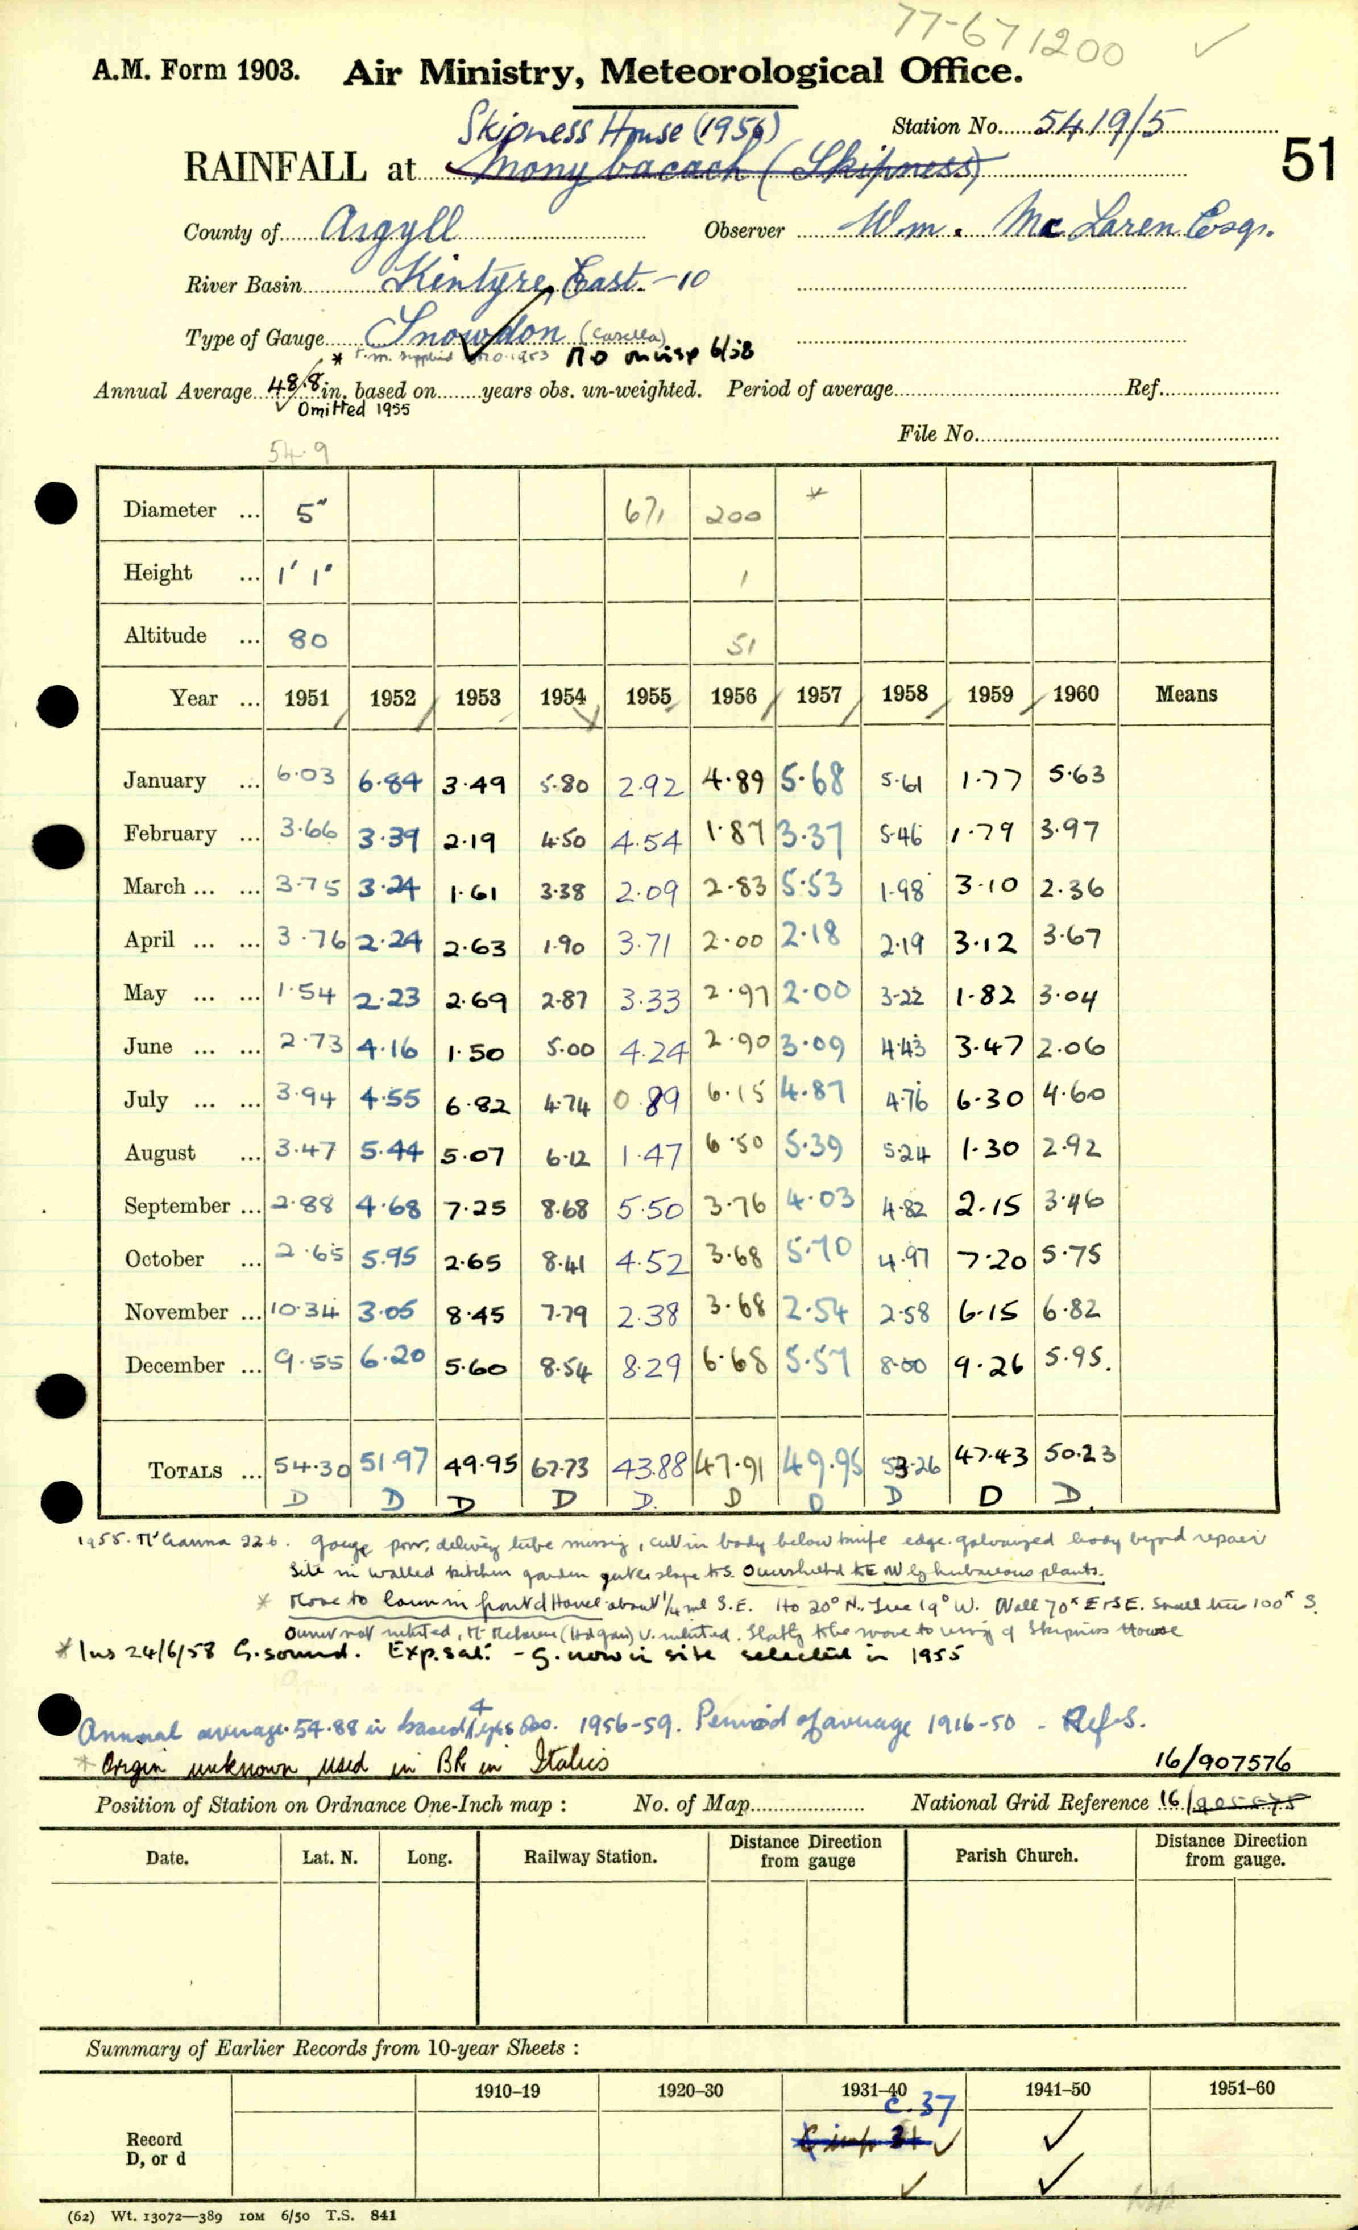 77-671200 ✓
A.M. Form 1903. Air Ministry, Meteorological Office.
Skipness House (1956) Station No. 5419/5
RAINFALL at (Skipness) 51
County of Argyll Observer Wm. McLaren Esqr.
River Basin Kintyre, East - 10
Type of Gauge Snowdon (Casella)
* supplied 1953 MO 6/58
Annual Average 48.8 in. based on years obs. un-weighted. Period of average Ref.
✓ Omitted 1955
File No.
54.9
Diameter ... 5" 671 200 *
Height ... 1' 1" 1
Altitude ... 80 51
Year ... 1951 1952 1953 1954 1955 1956 1957 1958 1959 1960 Means
January ... 6.03 6.84 3.49 5.80 2.92 4.89 5.68 5.61 1.77 5.63
February ... 3.66 3.39 2.19 4.50 4.54 1.87 3.37 5.46 1.79 3.97
March ... ... 3.75 3.24 1.61 3.38 2.09 2.83 5.53 1.98 3.10 2.36
April ... ... 3.76 2.24 2.63 1.90 3.71 2.00 2.18 2.19 3.12 3.67
May ... ... 1.54 2.23 2.69 2.87 3.33 2.97 2.00 3.22 1.82 3.04
June ... ... 2.73 4.16 1.50 5.00 4.24 2.90 3.09 4.43 3.47 2.06
July ... ... 3.94 4.55 6.82 4.74 0.89 6.15 4.87 4.76 6.30 4.60
August ... 3.47 5.44 5.07 6.12 1.47 6.50 5.39 5.24 1.30 2.92
September ... 2.88 4.68 7.25 8.68 5.50 3.76 4.03 4.82 2.15 3.46
October ... 2.65 5.95 2.65 8.41 4.52 3.68 5.70 4.97 7.20 5.75
November ... 10.34 3.05 8.45 7.79 2.38 3.68 2.54 2.58 6.15 6.82
December ... 9.55 6.20 5.60 8.54 8.29 6.68 5.57 8.00 9.26 5.95.
TOTALS ... 54.30 51.97 49.95 67.73 43.88 47.91 49.95 53.26 47.43 50.23
D D D D D. D D D D D.
1955. gauge poor, delivery tube missing, cut in body below knife edge. galvanized body beyond repair
Site in walled kitchen garden gentle slope to S. Oversheltd to E NW by herbaceous plants.
* Move to lawn in front of House about 1/4 ml S.E. Ho 20° N. Tree 19° W. Wall 70° E + SE. Small tree 100° S.
Owner not, McLaren v. to move to of Skipness House
* Ins 24/6/58 G. sound. Exp. sat: - G. now in site selected in 1955
Annual average 54.88 in based 4 yrs obs. 1956-59. Period of average 1916-50 - Ref S.
* Origin unknown, used in BR in Italics 16/907576
Position of Station on Ordnance One-Inch map : No. of Map National Grid Reference 16/905575
Date. Lat. N. Long. Railway Station. Distance Direction from gauge Parish Church. Distance Direction from gauge.
Summary of Earlier Records from 10-year Sheets :
1910-19 1920-30 1931-40 1941-50 1951-60
c. 37
Record D, or d ✓ ✓
✓ ✓
(62) Wt. 13072—389 10M 6/50 T.S. 841